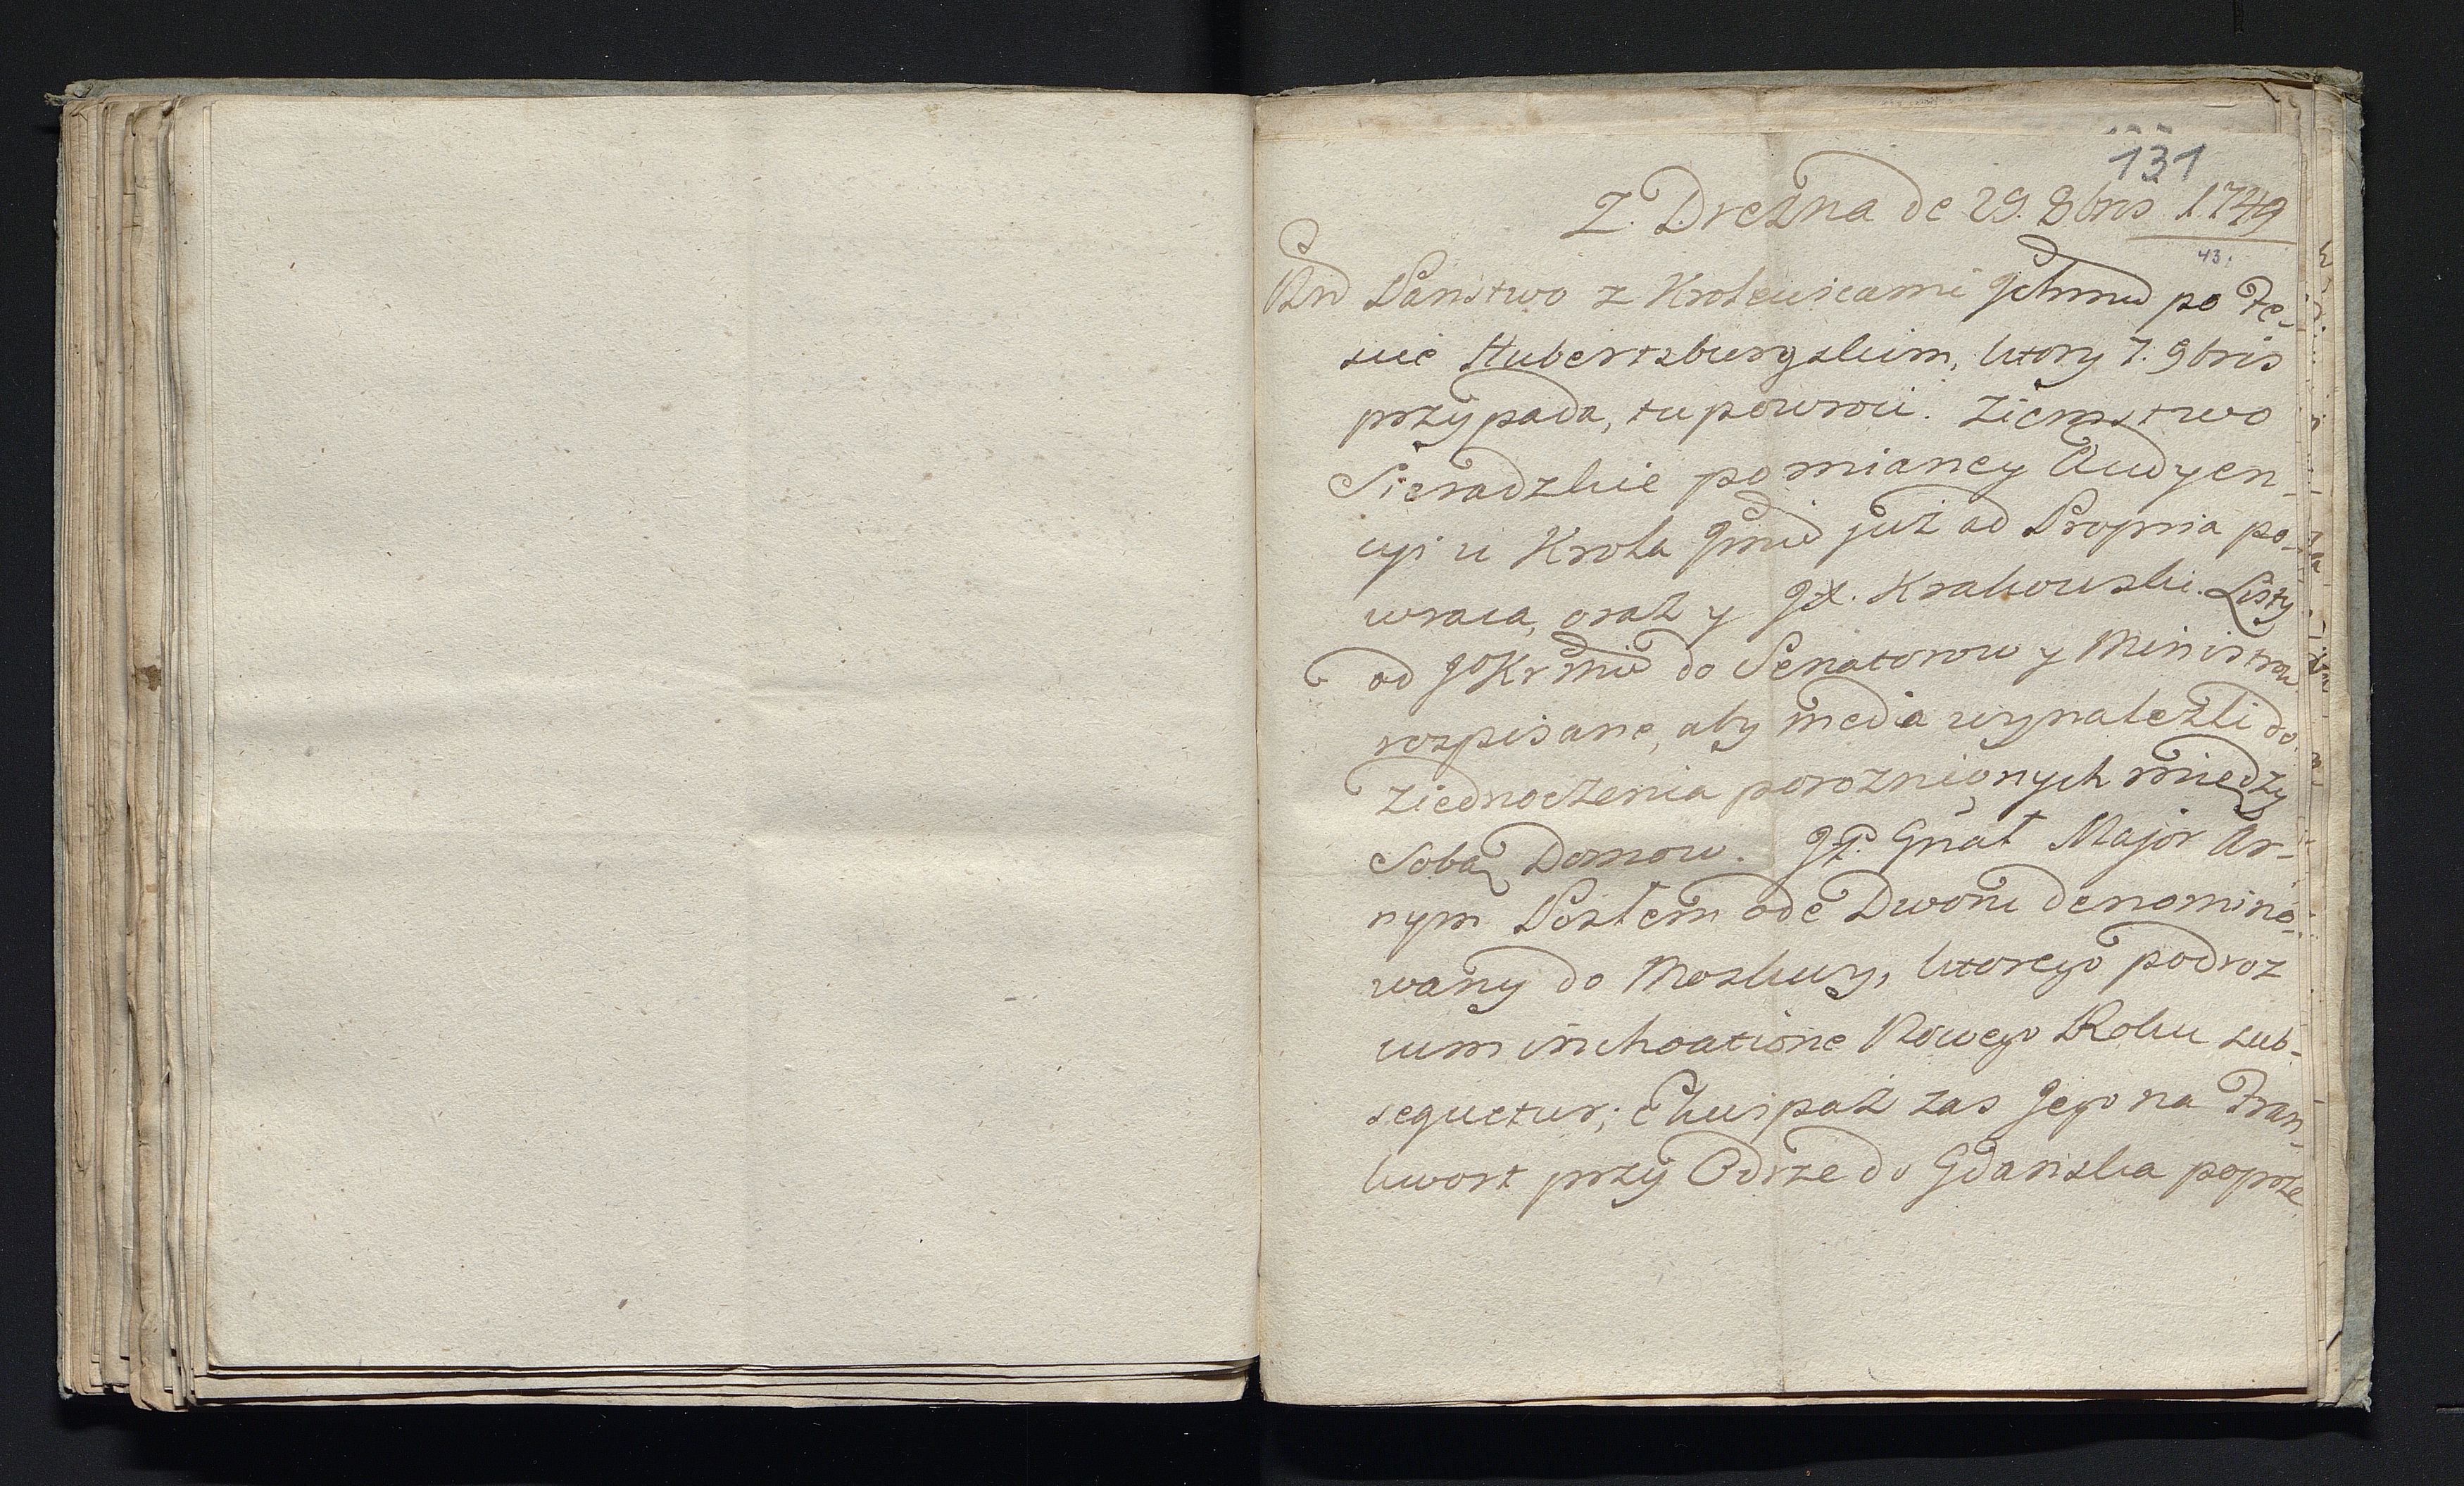 131
Z. Drezna de 29. 8bris 1749
43.
Pnd Państwo z Krolewicami Ichmcd po Fe-
scie Hubertsburgskim, ktory 7. 9bris
przypada, tu powroci. Ziemstwo
Sieradzkie po mianey Audyen-
cyi u Krola Jmcd już ad Propria po-
wraca, oraz y JX. Krakowski. Listy
od JoKrmci do Senatorow y Ministrow
rozpisane, aby media wynalezli do
ziednoczenia poroznionych między
Sobą Domow. JP. Gnał Major Ar-
nym Posłem ode Dworu denomino-
wany do Moskwy, ktorego podroz
cum inchoatione Nowego Roku sub-
sequetur; Ekwipaż zas Jego na Fran-
kwort przy Odrze do Gdanska poprze